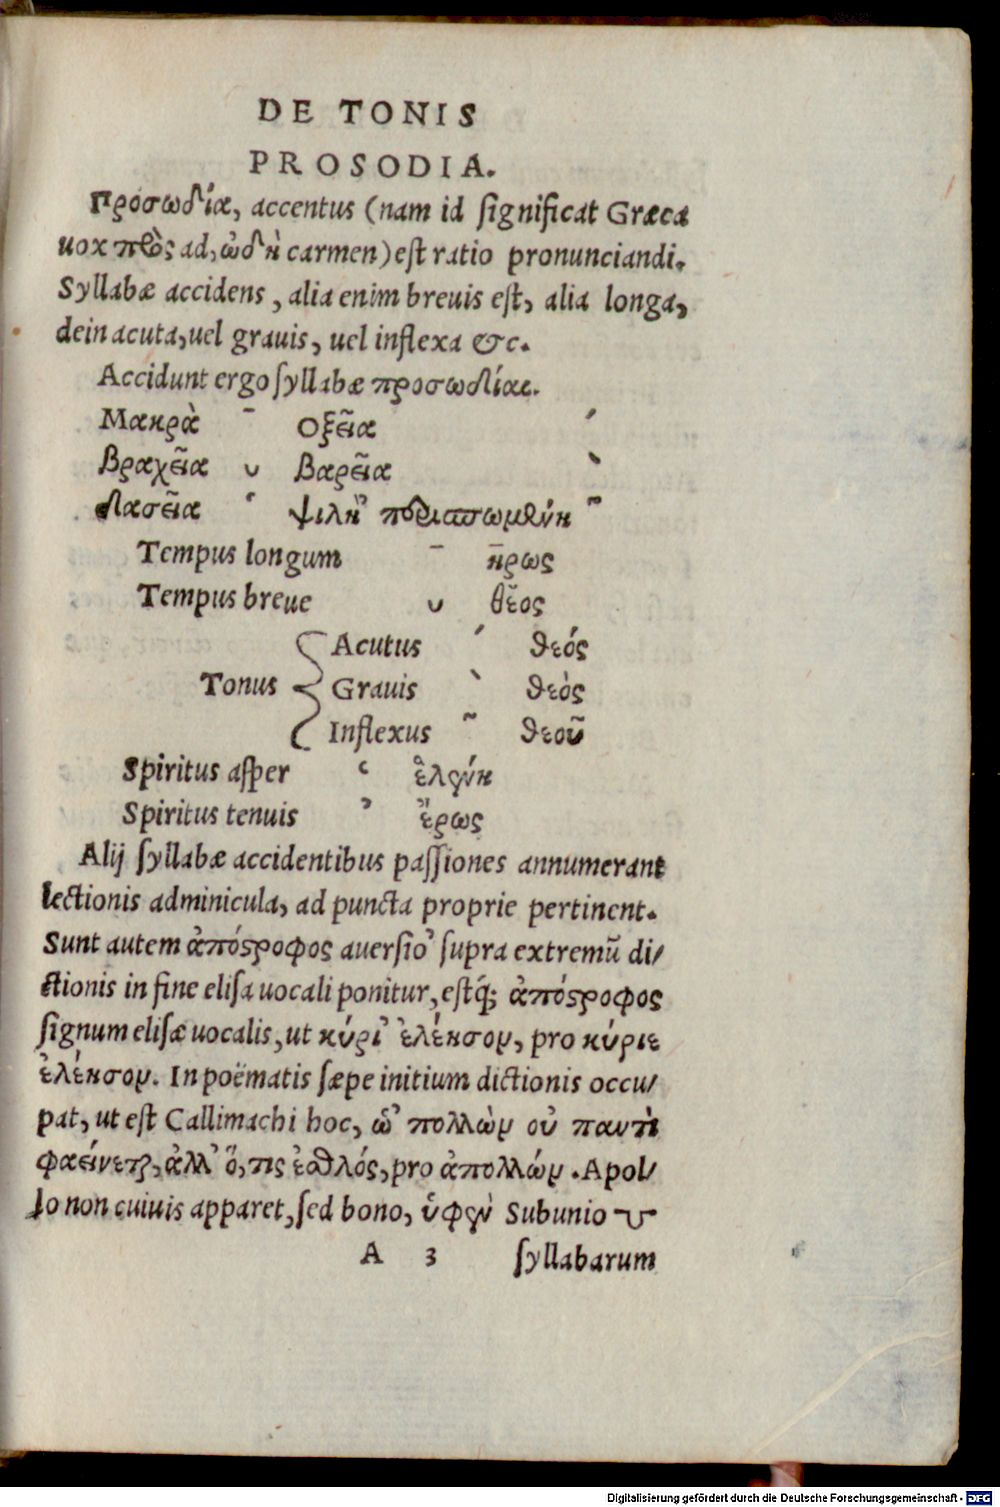 DE TONIS
PROSODIA.
Προσωδία, accentus (nam id ſignificat Græca
uox πρὸς ad, ὠδὴ carmen) eſt ratio pronunciandi.
Syllabæ accidens, alia enim breuis eſt, alia longa,
dein acuta, uel grauis, uel inflexa &c.
Accidunt ergo ſyllabæ προσωδίαι.
Μακρὰ ¯ Οξεῖα ´
βραχεῖα ᴗ βαρεῖα `
δασεῖα ῾ ψιλὴ ᾿ περισπωμένη ῀
Tempus longum ¯ ηρως
Tempus breue ᴗ θεος
Tonus
Acutus ´ θεός
Grauis ` θεὸς
Inflexus ῀ θεοῦ
Spiritus aſper ῾ ἑλένη
Spiritus tenuis ᾿ ἔρως
Alij ſyllabæ accidentibus paſſiones annumerant
lectionis adminicula, ad puncta proprie pertinent.
Sunt autem ἀπόςροφος auerſio ᾿ ſupra extremū di/
ctionis in fine eliſa uocali ponitur, eſtq́; ἀπόςροφος
ſignum eliſæ uocalis, ut κύρι᾿ ἐλέησον, pro κύριε
ἐλέησον. In poëmatis ſæpe initium dictionis occu/
pat, ut eſt Callimachi hoc, ὠ᾿ πολλὼν οὐ παντὶ
φαείνεται, ἀλλ᾿ ὅ, τις ἐσθλός, pro ἀπολλών. Apol/
lo non cuiuis apparet, ſed bono, ὑφὲν Subunio ‿
A 3 ſyllabarum
Digitalisierung gefördert durch die Deutsche Forschungsgemeinschaft - DFG